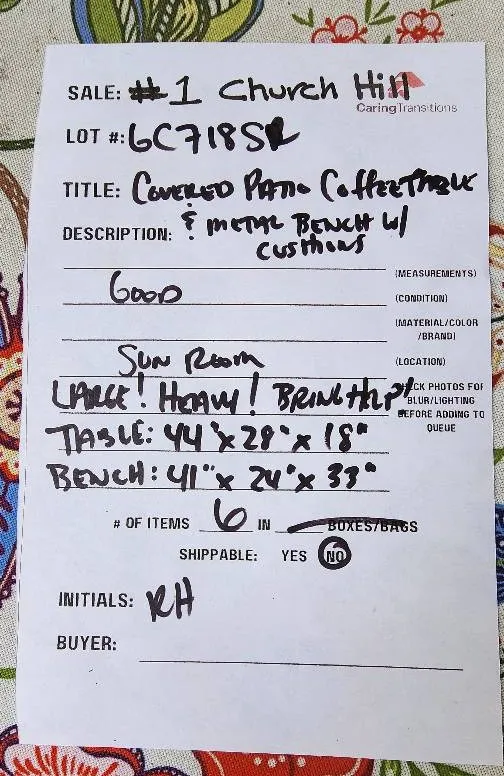 SALE: #1 Church Hill
CaringTransitions
LOT #: 6C718SR
TITLE: COVERED PATIO COFFEETABLE
DESCRIPTION: & METAL BENCH W/
CUSHIONS
(MEASUREMENTS)
GOOD (CONDITION)
(MATERIAL/COLOR
/BRAND)
SUN ROOM (LOCATION)
LARGE! HEAVY! BRING HELP!
CK PHOTOS FOR
BLUR/LIGHTING
BEFORE ADDING TO
QUEUE
TABLE: 44"x 28"x 18"
BENCH: 41"x 24"x 33"
# OF ITEMS 6 IN BOXES/BAGS
SHIPPABLE: YES NO
INITIALS: RH
BUYER: